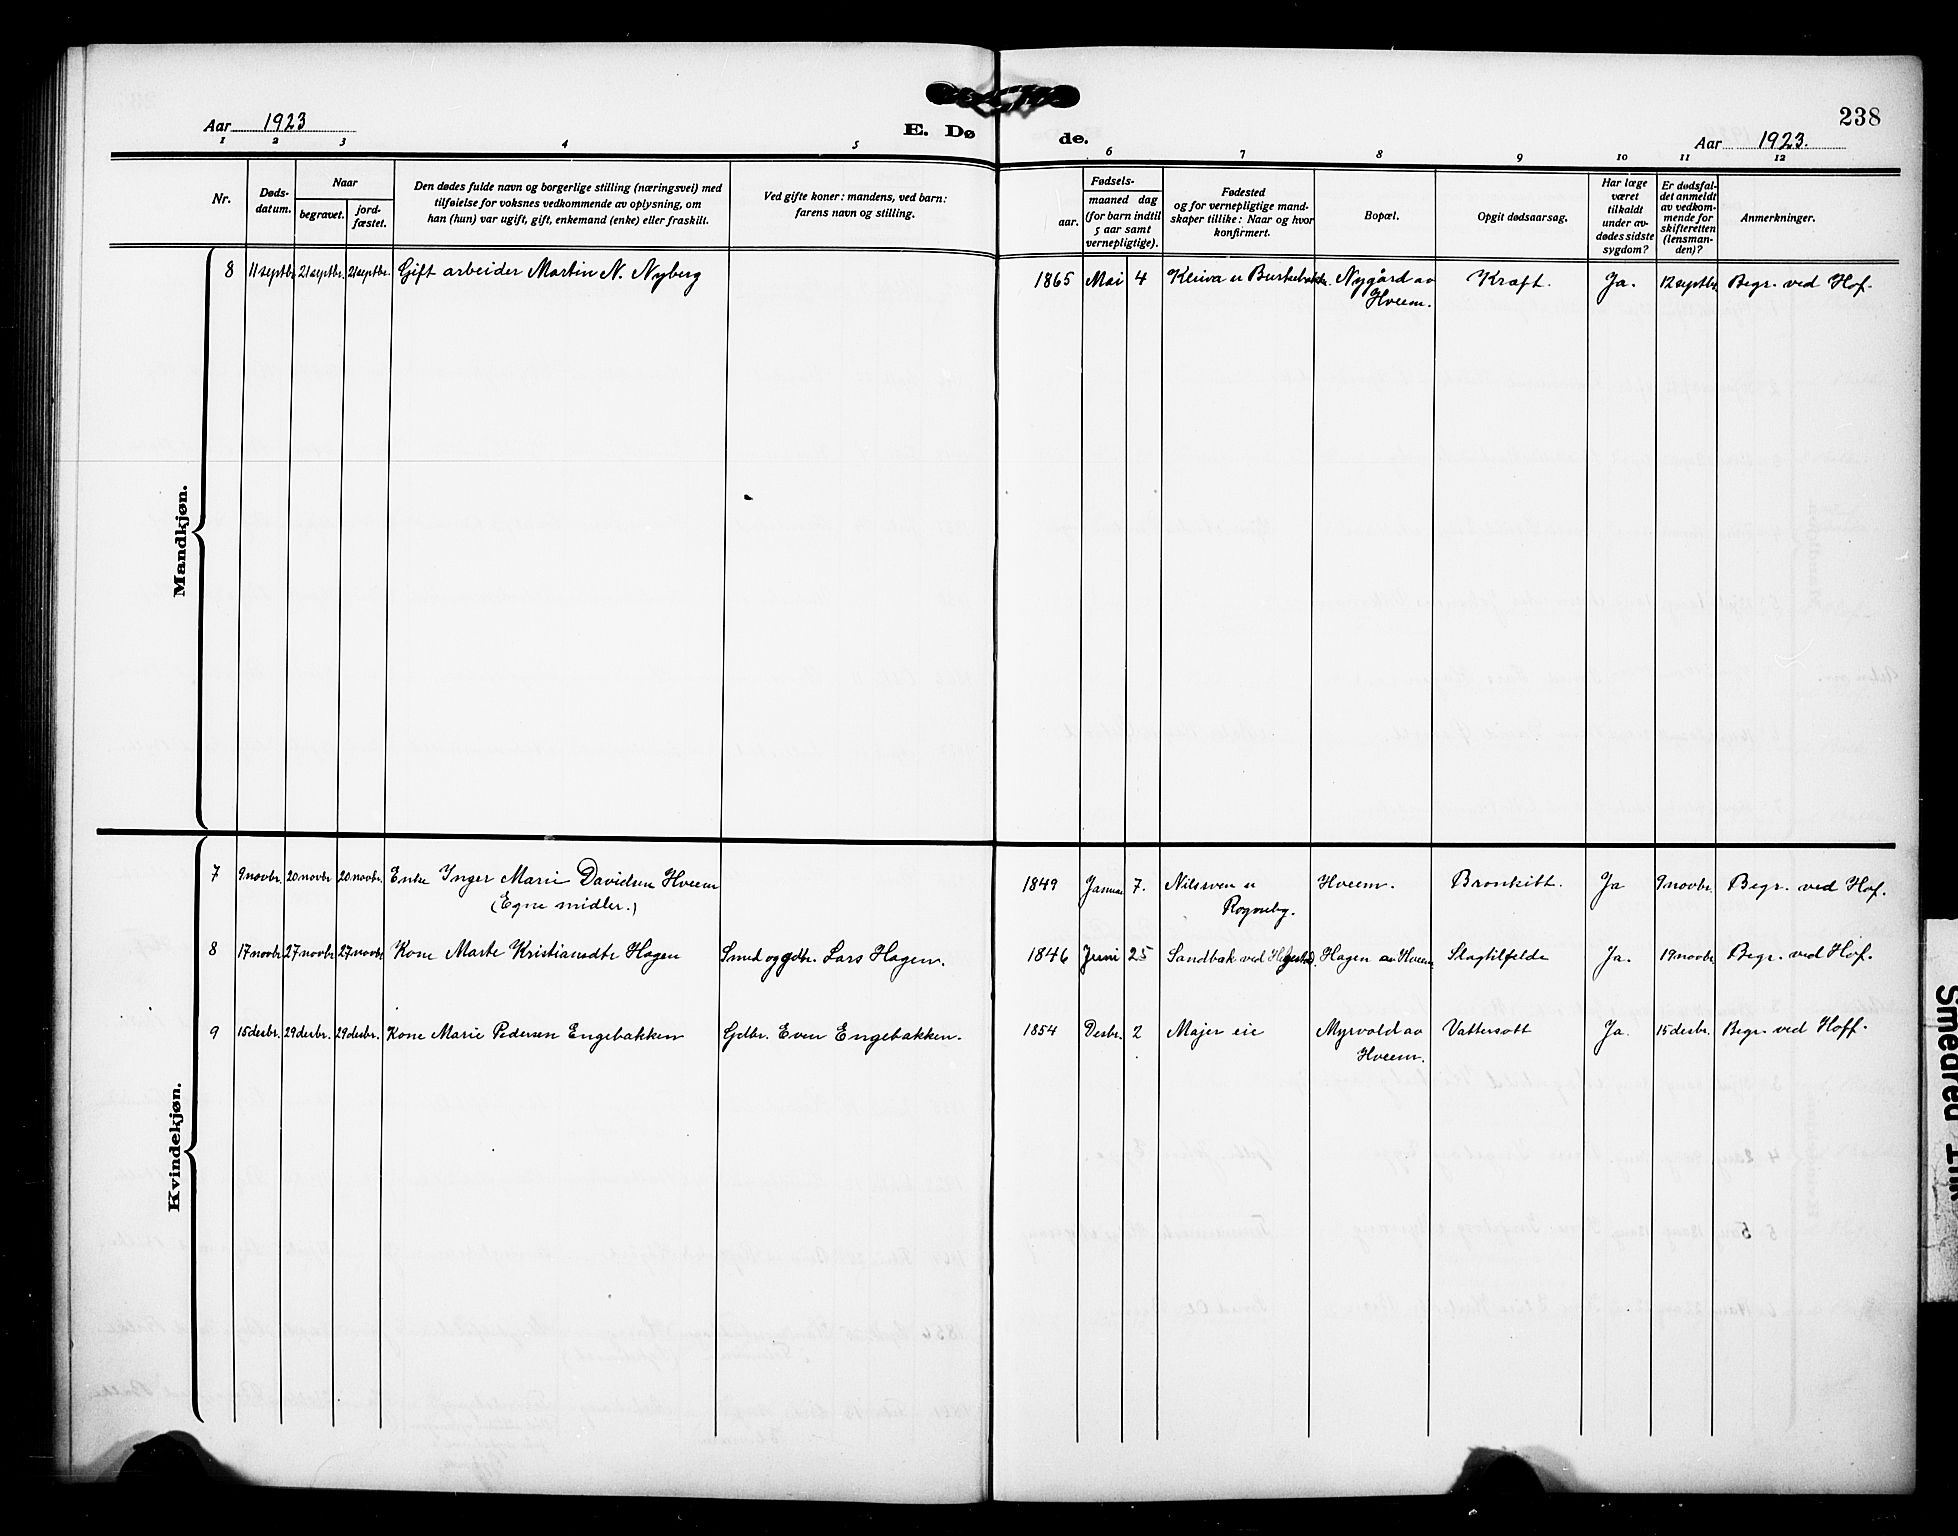 238
Aar 1923
E. Dø de.
Aar 1923.
1 2 3 4 5 6 7 8 9 10 11 12
Nr.
Døds-
datum.
Naar
begravet.
jord-
fæstet.
Den dødes fulde navn og borgerlige stilling (næringsvei) med
tilføielse for voksnes vedkommende av oplysning, om
han (hun) var ugift, gift, enkemand (enke) eller fraskilt.
Ved gifte koner: mandens, ved barn:
farens navn og stilling.
Fødsels-
aar.
maaned dag
(for barn indtil
5 aar samt
vernepligtige).
Fødested
og for vernepligtige mand-
skaper tillike: Naar og hvor
konfirmert.
Bopæl.
Opgit dødsaarsag.
Har læge
været
tilkaldt
under av-
dødes sidste
sygdom?
Er dødsfal-
det anmeldt
av vedkom-
mende for
skifteretten
(lensman-
den)?
Anmerkninger.
Mandkjøn.
8 11 septbr. 21 septbr. 21 septbr. Gift arbeider Martin N. Nyberg 1865 Mai 4 Nygård av Kræft. Ja. 12 septbr. Begr. ved Hof.
Hveem.
Kvindekjøn.
7 9 novbr. 20 novbr 20 novbr. Enke Inger Marie Davidsen Hveem 1849 Januar 7. Hveem. Bronkitt. Ja 9 novbr. Begr. ved Hof.
(Egne midler.) Rogneby.
8 17 novbr 27 novbr 27 novbr Kone Marte Kristiansdtr Hagen Smed og gdbr. Lars Hagen. 1846 Juni 25 Sandbak ved Hagen av Hveem Slagtilfelde Ja. 19 novbr. Begr. ved Hof.
9 15 desbr. 29 desbr. 29 desbr. Kone Marie Pedersen Engebakken Gdbr. Even Engebakken. 1854 Desbr. 2 Majer eie Myrvold av Vattersott Ja. 15 desbr. Begr. ved Hoff.
Hveem.
Smeared Ink